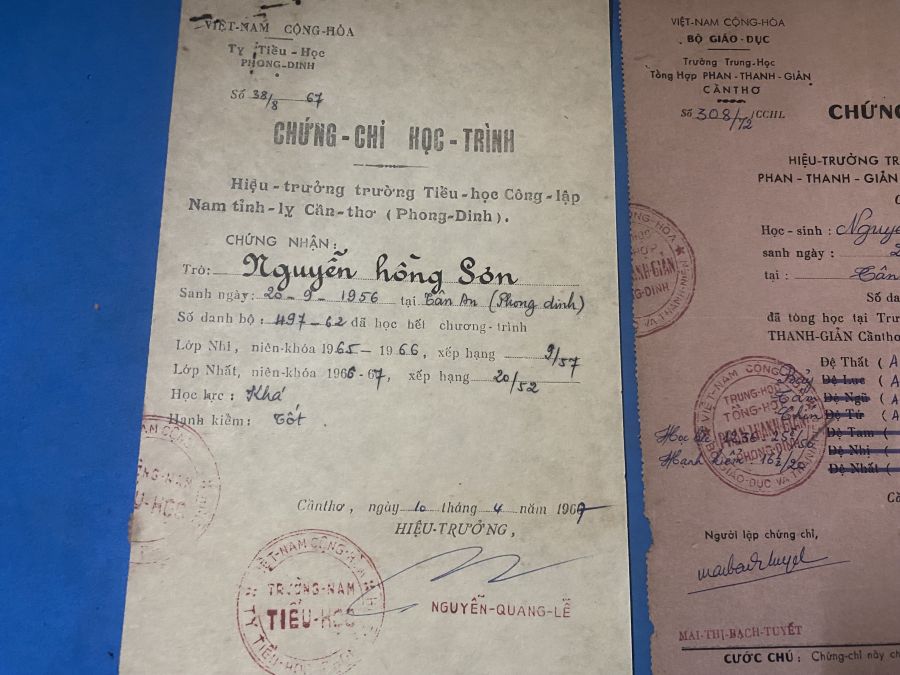 VIỆT-NAM CỘNG-HÒA
Ty Tiểu-Học
PHONG-DINH
Số 38/8 67
CHỨNG-CHỈ HỌC-TRÌNH
Hiệu-trưởng trường Tiểu-học Công-lập
Nam tỉnh-lỵ Cần-thơ (Phong-Dinh).
CHỨNG NHẬN:
Trò: Nguyễn hồng Sơn
Sanh ngày: 20-9-1956 tại Tân An (Phong dinh)
Số danh bộ: 497-62 đã học hết chương-trình
Lớp Nhì, niên-khóa 1965-1966, xếp hạng 9/57
Lớp Nhất, niên-khóa 1966-67, xếp hạng 20/52
Học lực: Khá
Hạnh kiểm: Tốt
Cầnthơ, ngày 10 tháng 4 năm 1967
HIỆU-TRƯỞNG,
VIỆT-NAM CỘNG-HÒA
TRƯỜNG-NAM
TIỂU-HỌC
TY TIỂU-HỌC
NGUYỄN-QUANG-LỄ
VIỆT-NAM CỘNG-HÒA
BỘ GIÁO-DỤC
Trường Trung-Học
Tổng Hợp PHAN-THANH-GIẢN
CẦNTHƠ
Số 308/72/CCHL
CHỨNG
HIỆU-TRƯỞNG TR
PHAN-THANH-GIẢN
Học-sinh: Nguyễ
sanh ngày: 2
tại: Cần
Số da
đã tòng học tại Trư
THANH-GIẢN Cầnthơ
Đệ Thất (A
Bảy Đệ Lục (A
Tám Đệ Ngũ (A
Chín Đệ Tứ (A
Đệ Tam (
Đệ Nhị (
Đệ Nhất (
Hạnh kiểm:
VIỆT-NAM CỘNG
TRUNG-HỌC
TỔNG-HỢP
PHAN THANH GIẢN
PHONG-DINH
BỘ GIÁO-DỤC VÀ THANH-NIÊN
Người lập chứng chỉ,
MAI-THỊ-BẠCH-TUYẾT
CƯỚC CHÚ: Chứng-chỉ này ch